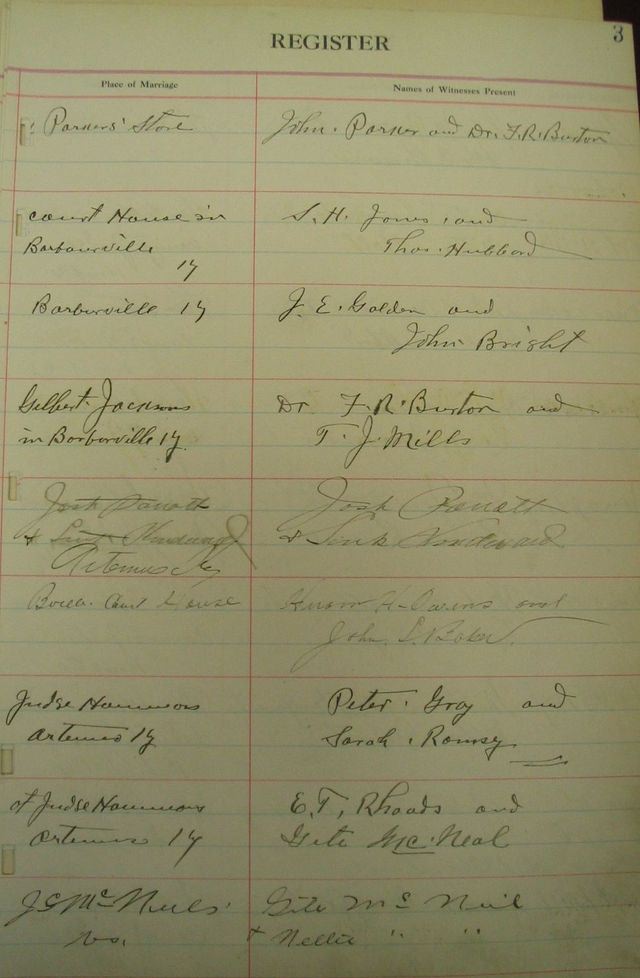 3
REGISTER
Place of Marriage
Names of Witnesses Present
Parkers' Store
John. Parker and Dr. F. R. Burton
Court House in
Barbourville
Ky
S. H. Jones, and
Thos. Hubbard
Barberville Ky
J. E. Golden and
John Bright
Gilbert Jacksons
in Barberville Ky.
Dr F. R. Burton and
T. J. Mills
Josh
Artemus Ky
Josh
&
Court House
H. Owens and
John S. Baker.
Judge Hammons
Artemus Ky
Peter Gray and
Sarah Ramsey
at Judge Hammons
Artemus Ky
E. T. Rhoads and
McNeal
J G McNeils'
Mc Neil
+ Nettie " "